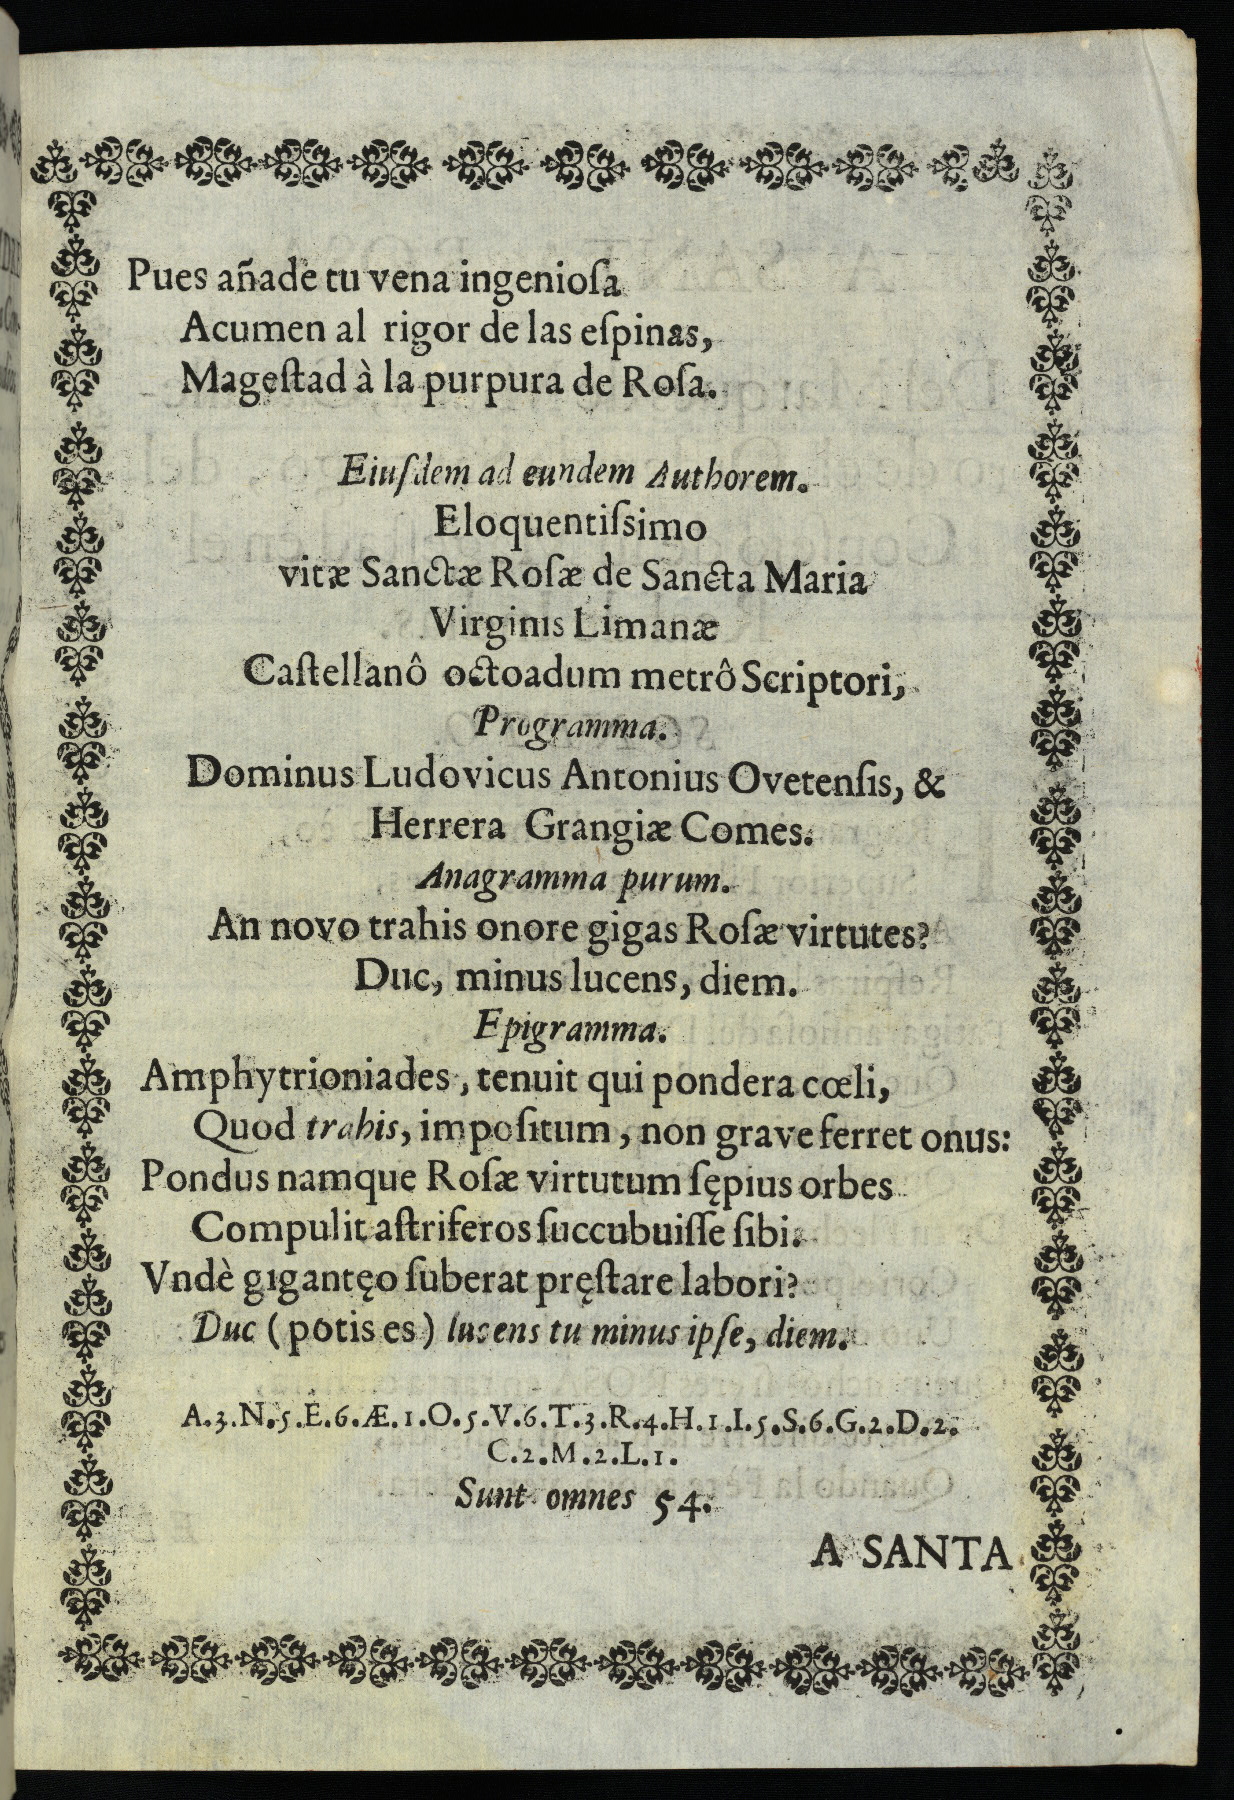 Pues añade tu vena ingeniosa
Acumen al rigor de las espinas,
Magestad à la purpura de Rosa.
Eiusdem ad eundem Authorem.
Eloquentissimo
vitæ Sanctæ Rosæ de Sancta Maria
Virginis Limanæ
Castellanô octoadum metrô Scriptori,
Programma.
Dominus Ludovicus Antonius Ovetensis, &
Herrera Grangiæ Comes.
Anagramma purum.
An novo trahis onore gigas Rosæ virtutes?
Duc, minus lucens, diem.
Epigramma.
Amphytrioniades, tenuit qui pondera cœli,
Quod trahis, impositum, non grave ferret onus:
Pondus namque Rosæ virtutum sępius orbes
Compulit astriferos succubuisse sibi.
Vndè gigantęo suberat pręstare labori?
Duc (potis es) lucens tu minus ipse, diem.
A.3.N.5.E.6.Æ.1.O.5.V.6.T.3.R.4.H.1.I.5.S.6.G.2.D.2.
C.2.M.2.L.1.
Sunt omnes 54.
A SANTA